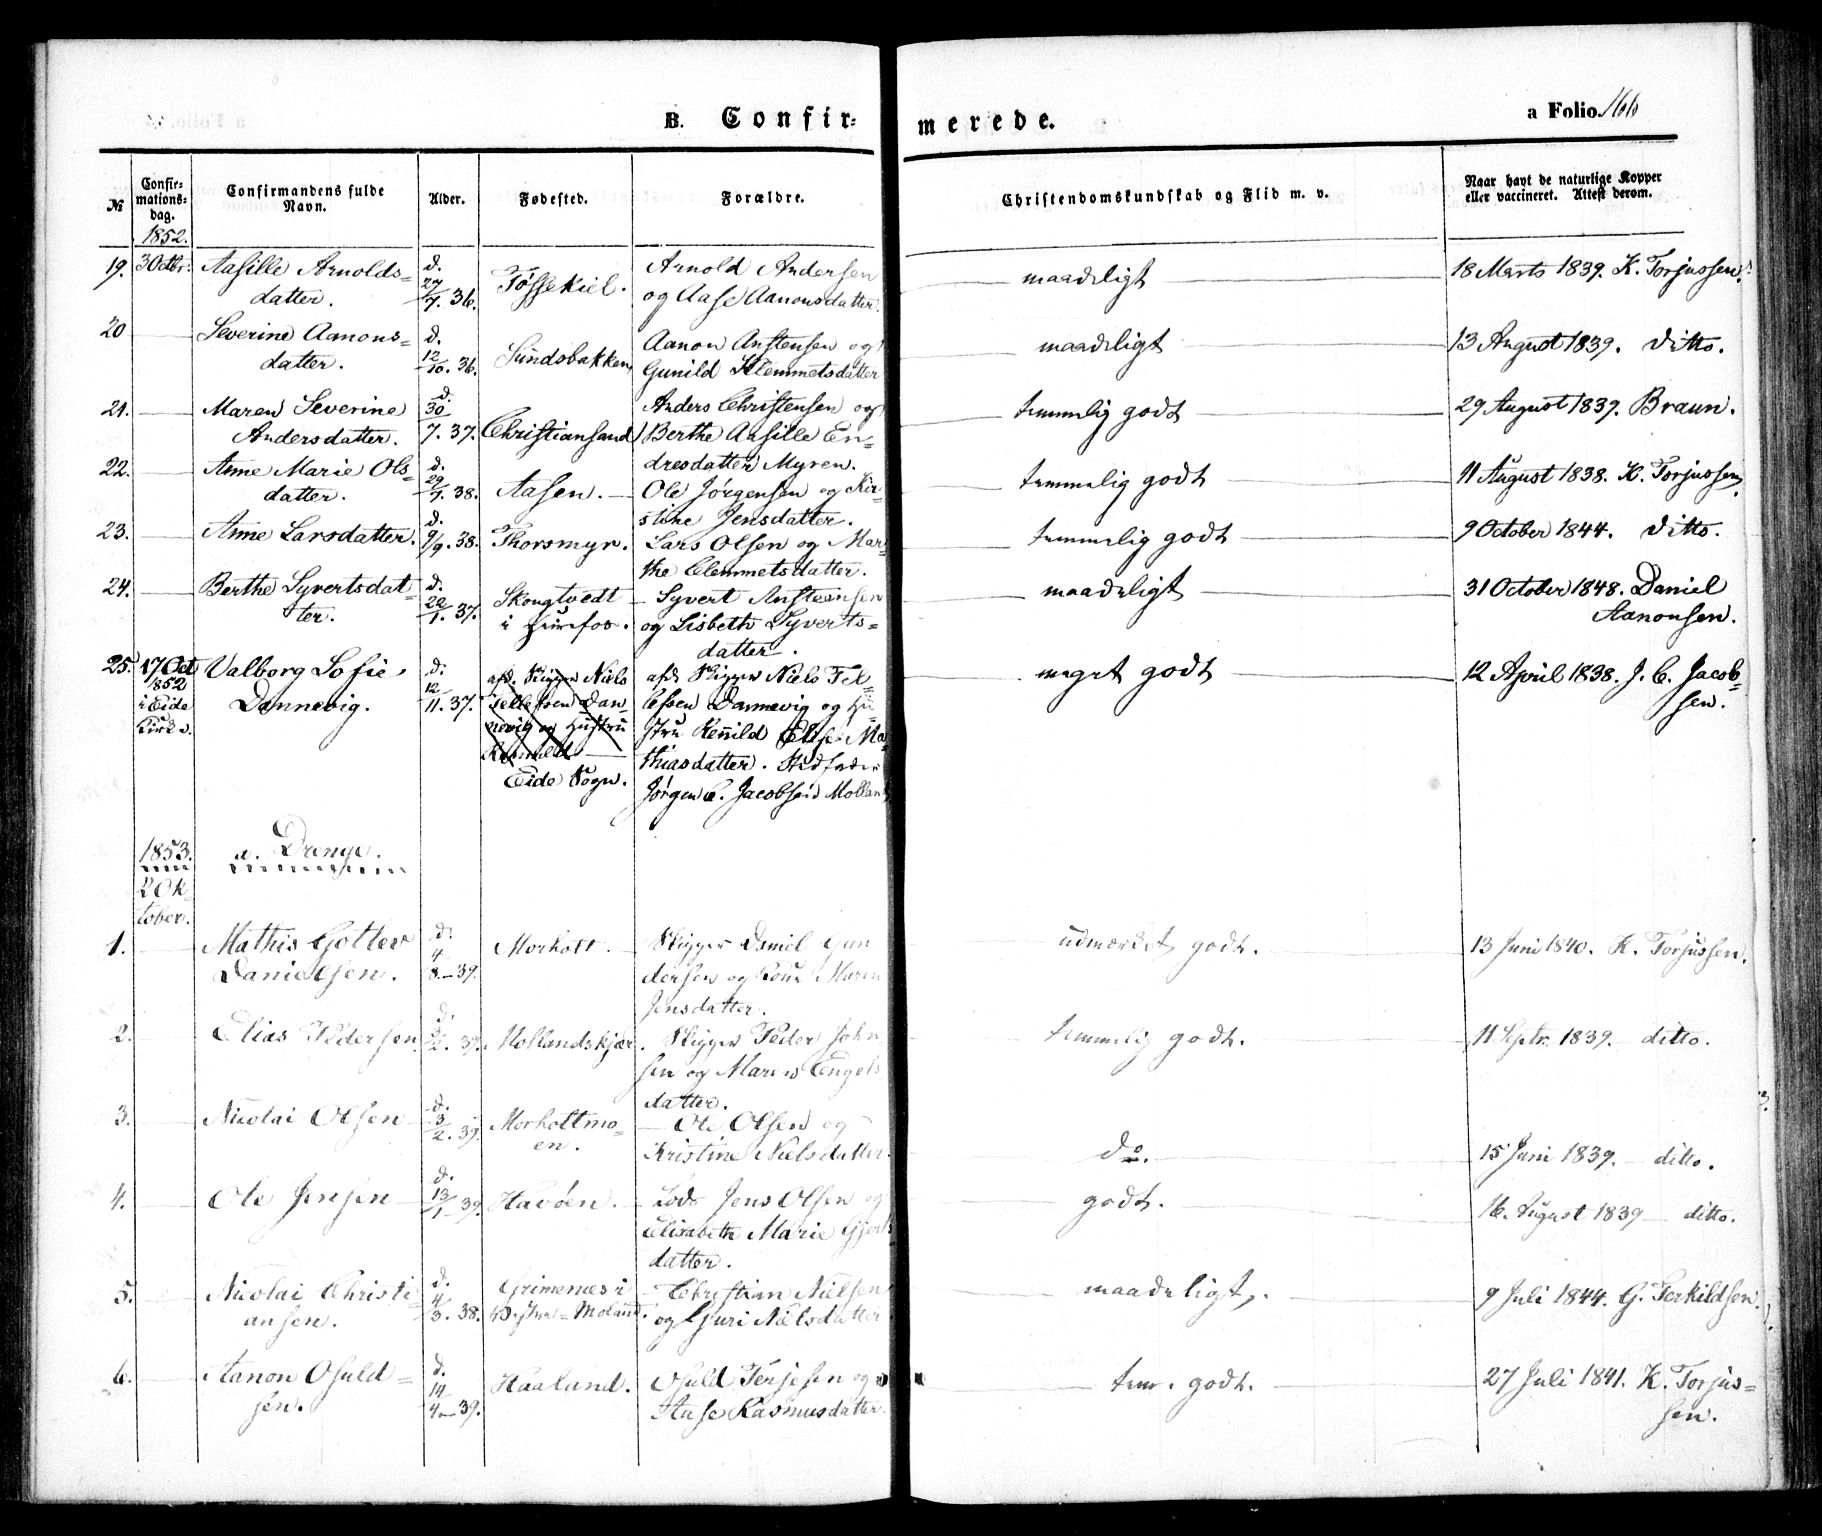 B. Confir= merede.
a Folio 166
№
Confir=
mations=
dag.
1852.
Confirmandens fulde
Navn.
Alder.
Fødested.
Forældre.
Christendomskundskab og Flid m. v.
Naar havt de naturlige Kopper
eller vaccineret. Attest derom.
19. 3 Octbr. Aasille Arnolds=
datter.
d. 27/7. 36.
Tøssekiel.
Arnold Andersen
og Aase Aanonsdatter.
maadeligt
18 Marts 1839. K. Torjussen.
20 Severine Aanons=
datter.
d. 12/10. 36.
Sundsbakken
Aanon Anstensen og
Gunild Klemmetsdatter
maadeligt
13 August 1839. ditto.
21. Maren Severine
Andersdatter.
d. 30/7. 37.
Christiansand
Anders Christensen og
Berthe Aasille En=
dresdatter Myren.
temmelig godt
29 August 1839. Braun.
22. Anne Marie Ols=
datter.
d. 29/7. 38.
Aasen.
Ole Jørgensen og Kir=
stine Jensdatter.
temmelig godt
11 August 1838. K. Torjussen.
23. Anne Larsdatter.
d. 9/9. 38.
Thorsmyr.
Lars Olsen og Mar=
the Clemmetsdatter.
temmelig godt
9 October 1844. ditto.
24. Berthe Syvertsdat=
ter.
d. 22/1. 37.
Skougtvedt
i
Syvert Ansteensen
og Lisbeth Syverts=
datter.
maadeligt
31 October 1848. Daniel
Aanonsen.
25. 17 Oct
1852
i Eide
Kirke.
Valborg Sofie
Dannevig.
d. 12/11. 37.
afd. Skipper Niels
Tellefsen Dan=
nevig og Hustru
Eide Sogn.
afd. Skipper Niels Tel=
lefsen Dannevig og Hu=
stru Ma=
thiasdatter. Stedfader
Jørgen C. Jacobsen Molland
meget godt
12 April 1838. J. C. Jacob=
sen.
1853.
2 Ok=
tober.
a. Drenge.
1. Mathis Gotlev
Danielsen.
d. 4/8 - 39.
Morholt.
Skipper Daniel Gun
dersen og Kone Maren
Jensdatter.
udmærket godt.
13 Juni 1840. K. Torjussen.
2. Elias Pedersen
d. 39.
Mollandskjær.
Skipper Peder John
sen og Maren Engels
datter.
temmelig godt.
11 Septr. 1839. ditto.
3. Nicolai Olsen
d. 3/2. 39.
Morholtmo=
en.
Ole Olsen og
Kristine Nielsdatter.
do.
15 Juni 1839. ditto.
4. Ole Jensen
d. 13/1 - 39.
Havøen.
Lods Jens Olsen og
Elisabeth Marie Gjerts
datter.
godt.
16. August 1839 ditto.
5. Nicolai Christi
ansen.
d. 4/3. 38.
Grimenæs i
Vestre=Moland.
Christian Nielsen
og Guri Nielsdatter
maadeligt.
9 Juli 1844. G. Terkildsen.
6. Aanon Osuld=
sen.
d. 14/4 - 39.
Haaland.
Osuld Terjesen og
Aase Rasmusdatter.
tem. godt.
27 Juli 1841. K. Torjus=
sen.